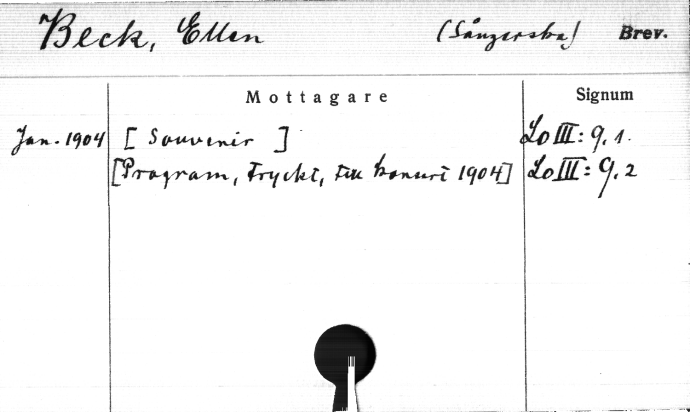 Beck, Ellen (Sångerska) Brev.
Mottagare Signum
Jan. 1904 [Souvenir] Lo III: 9.1.
[Program, tryckt, till konsert 1904] Lo III: 9.2